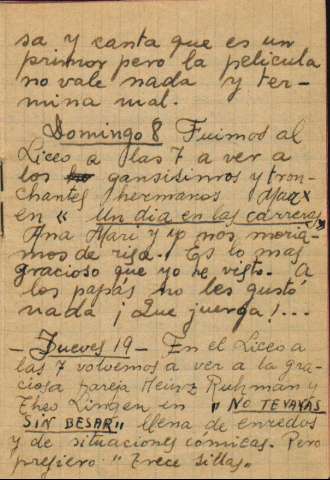 sa y canta que es un
primor pero la película
no vale nada y ter-
mina mal.
Domingo 8 Fuimos al
Liceo a las 7 a ver a
los gansisimos y tron-
chantes hermanos Marx
en "Un día en las carreras"
Ana Mari y yo nos moria-
mos de risa. Es lo mas
gracioso que yo he visto. A
los papás no les gustó
nada ¡Que juerga!...
- Jueves 19 - En el Liceo a
las 7 volvemos a ver a la gra-
ciosa pareja Heinz Ruhman y
Theo Lingen en "NO TE VAYAS
SIN BESAR" llena de enredos
y de situaciones cómicas. Pero
prefiero "Trece sillas"